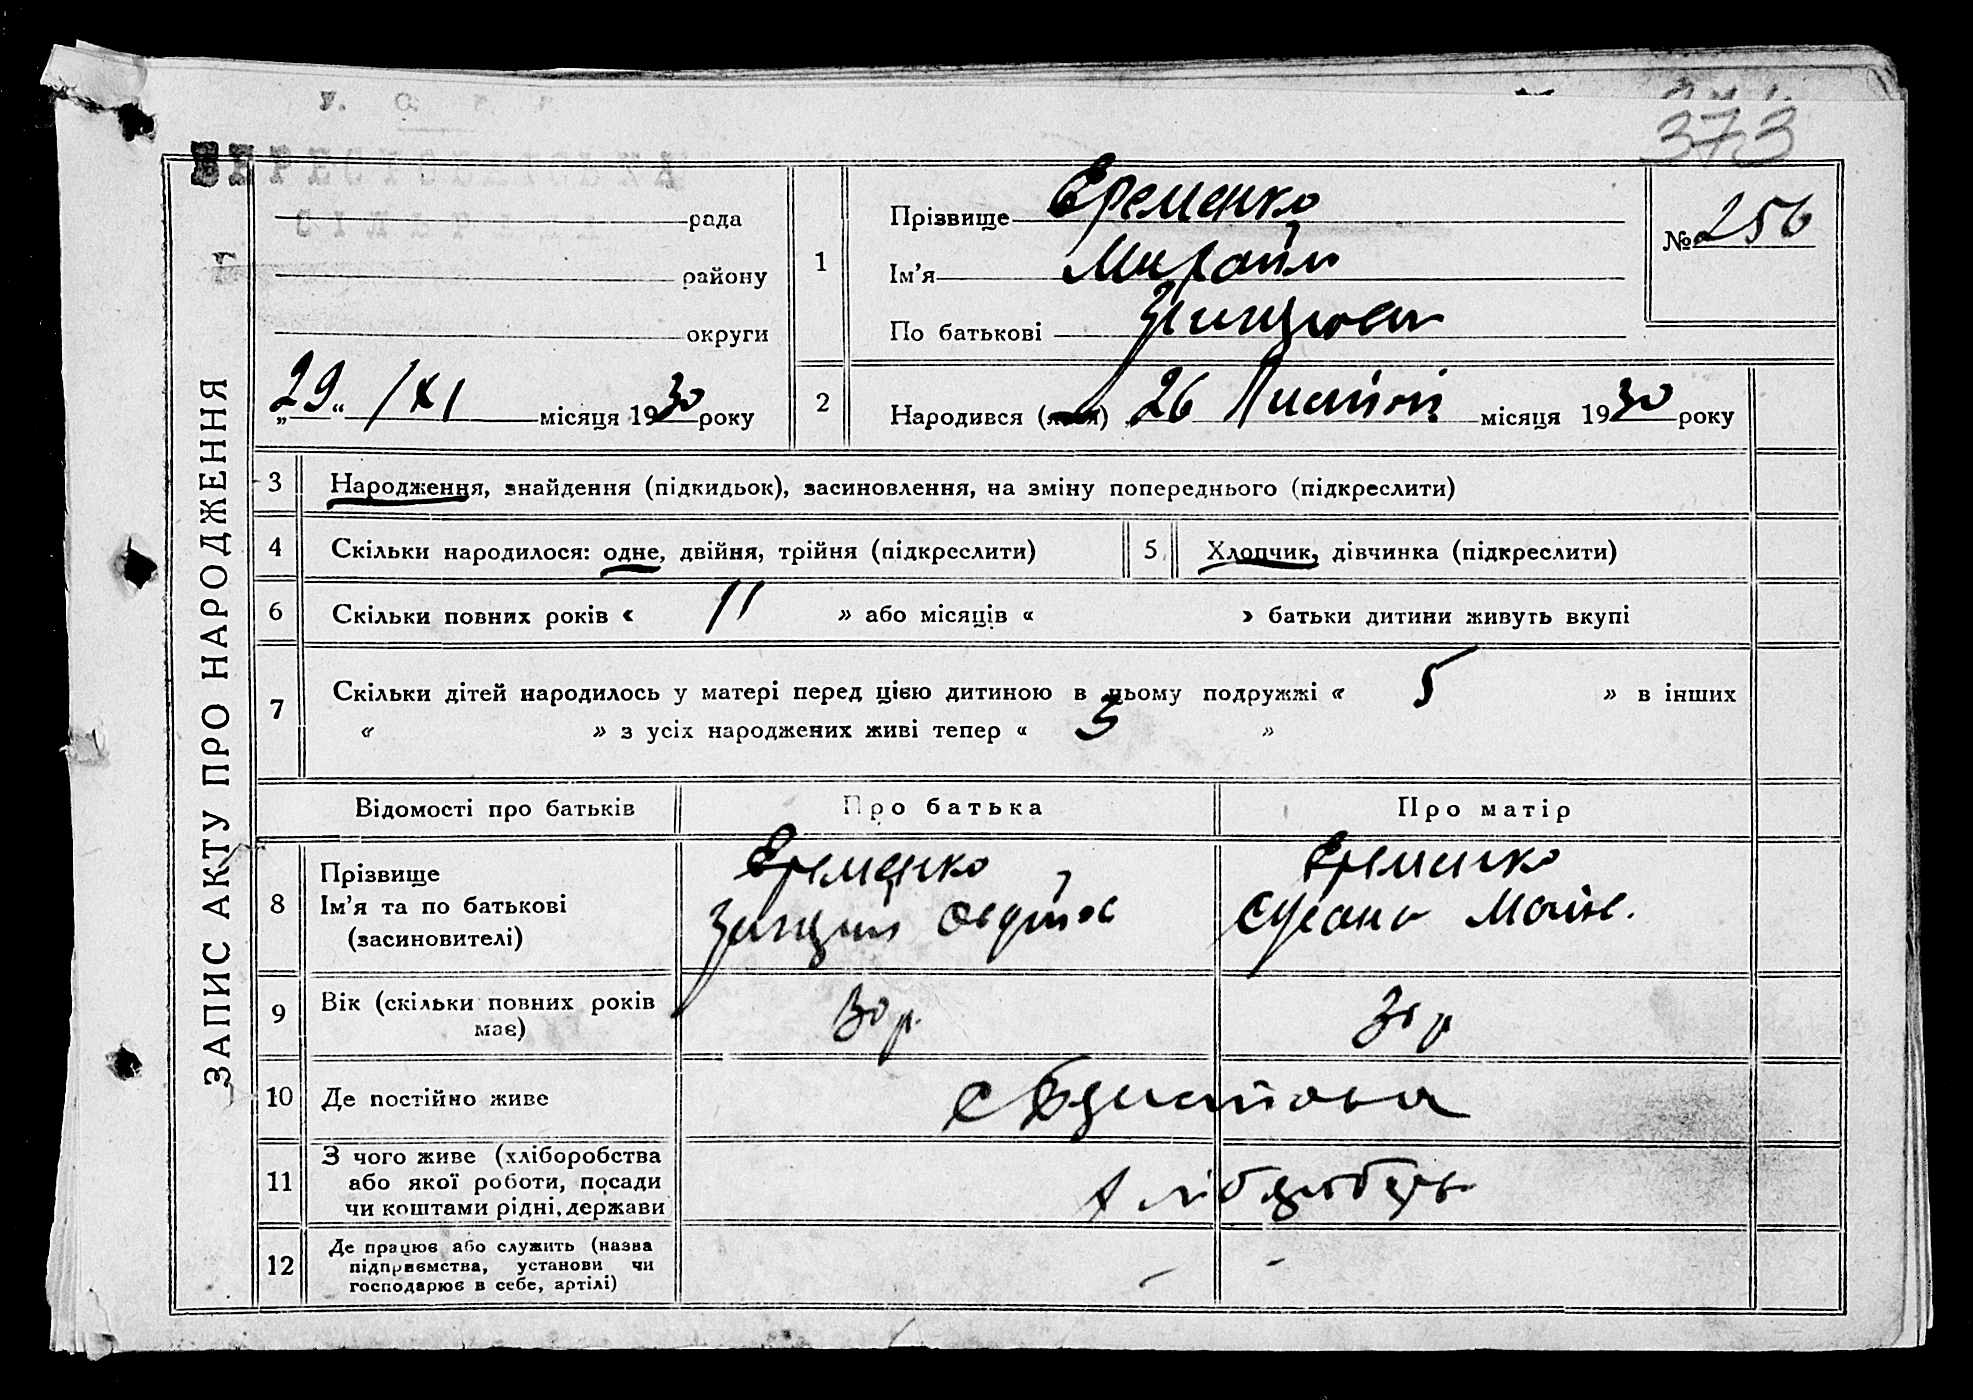 У. С. Р. Р.
373
БЕРЕСТОВАНСЬКА
СІЛЬРАДА
ЗАПИС АКТУ ПРО НАРОДЖЕННЯ
рада
району
округи
„29“ /XI місяця 1930 року
1
Прізвище Єременко
Ім’я Михайло
По батькові
№ 256
2
Народився (лася) 26 місяця 1930 року
3 Народження, знайдення (підкидьок), засиновлення, на зміну попереднього (підкреслити)
4 Скільки народилося: одне, двійня, трійня (підкреслити)
5 Хлопчик, дівчинка (підкреслити)
6 Скільки повних років « 11 » або місяців « » батьки дитини живуть вкупі
7 Скільки дітей народилось у матері перед цією дитиною в цьому подружжі « 5 » в інших
« » з усіх народжених живі тепер « 3 »
Відомості про батьків Про батька Про матір
8 Прізвище
Ім’я та по батькові
(засиновителі)
Єременко
Єременко
9 Вік (скільки повних років
має)
30 р.
30 р
10 Де постійно живе
с
11 З чого живе (хліборобства
або якої роботи, посади
чи коштами рідні, держави
12 Де працює або служить (назва
підприємства, установи чи
господарює в себе, артілі)
- -